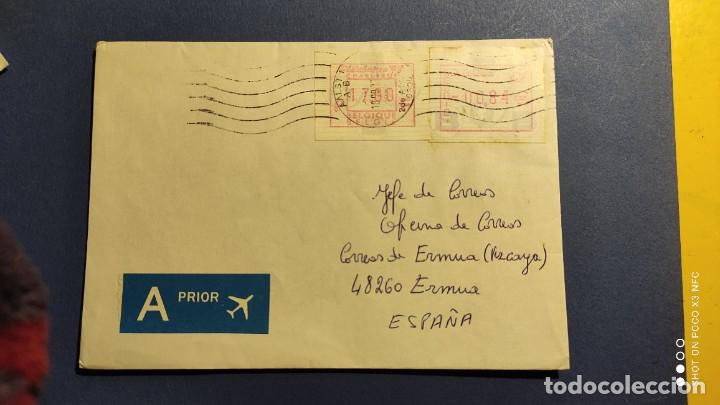 CHARLEROI
17.00
BELGIQUE
BELGIE
00.84
Jefe de Correos
Oficina de Correos
Correos de Ermua (Vizcaya)
48260 Ermua
ESPAÑA
A PRIOR
SHOT ON POCO X3 NFC
todocoleccion